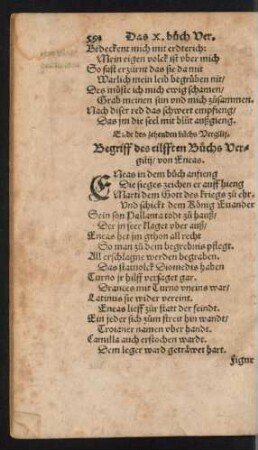 Das X. bůch Ver.
Bedeckent mich mit erdterich:
Mein eigen volck ist vber mich
So fast erzürnt das sie da mit
Warlich mein leib begrůben nit/
Des müste ich mich ewig schamen/
Grab meinen sun vnd mich züsammen.
Nach diser red das schwert empfieng/
Das jm die seel mit blůt außgieng.
Ende des zehenden bůchs Vergilij.
Begriff des eilfften Bůchs Ver-
gilij/ von Eneas.
Eneas in dem bůch anfieng
Die sieges zeichen er auff hieng
Marti dem Gott des kriegs zů ehr,
Vnd schickt dem König Euander
Sein son Pallanta todt zů hauß/
Der in seer klaget vber auß/
Eneas het jm gthon all recht
So man zů dem begrebnis pflegt.
All erschlagne werden begraben.
Das Diomedis haben
Turno jr hilff versaget gar.
Drances mit Turno vneins war/
Latinus sie wider vereint.
Eneas lieff zůr statt der feindt.
Ein jeder sich zům streit hin wandt/
Troianer namen vber handt.
Camilla auch erstochen wardt.
Dem leger ward geträwet hart.
Figur